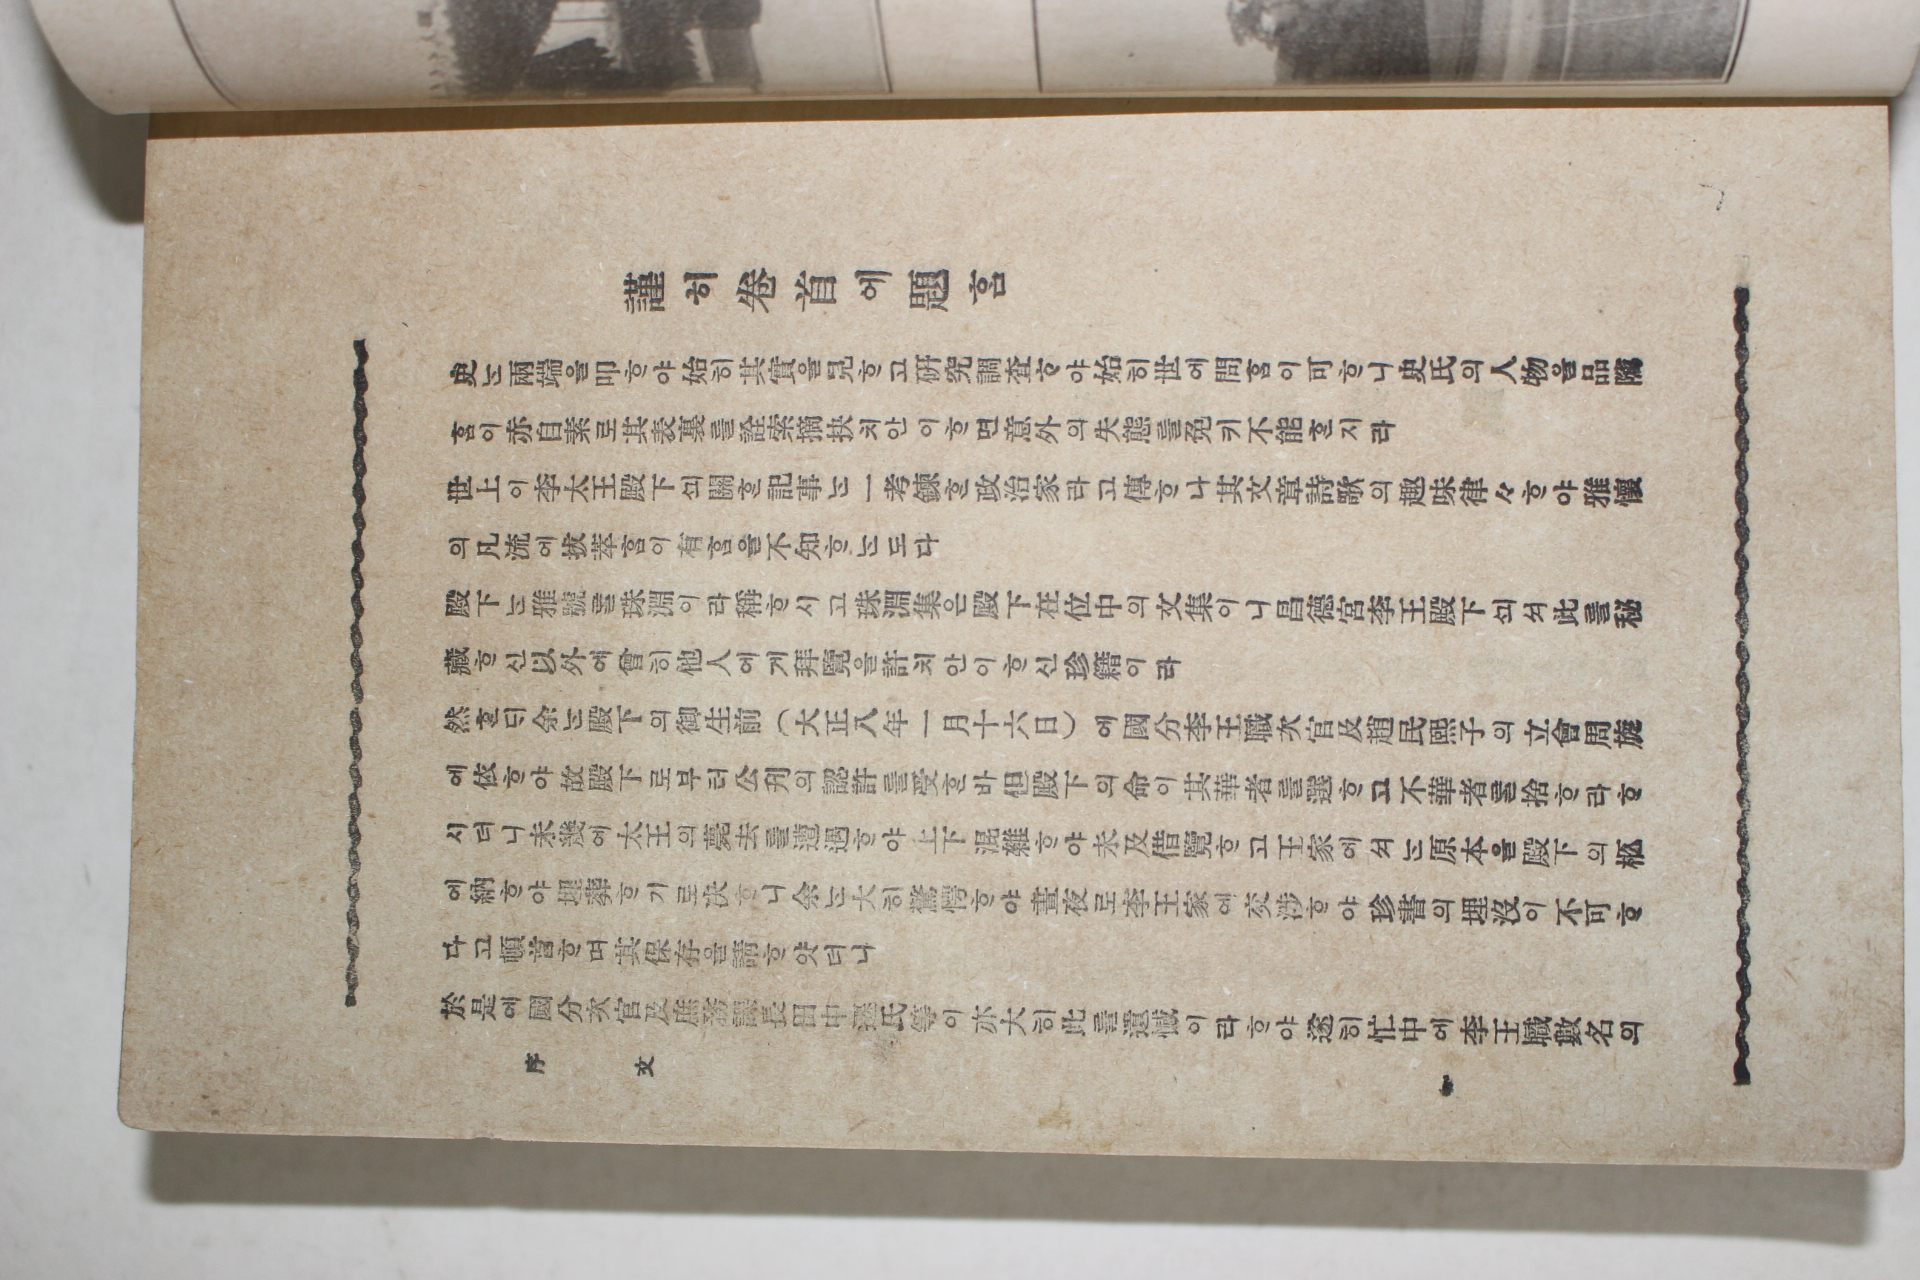 謹히卷首에題홈
史는兩端을叩ᄒᆞ야始히其實을見ᄒᆞ고硏究調査ᄒᆞ야始히世에問홈이可ᄒᆞ니史氏의人物을品隲
홈이赤白素로其表裏를詮索摘抉치안이ᄒᆞ면意外의失態를免키不能ᄒᆞᆫ지라
世上이李太王殿下ᄭᅴ關ᄒᆞᆫ記事는一考鍊ᄒᆞᆫ政治家라고傳ᄒᆞ나其文章詩歌의趣味律々ᄒᆞ야雅懷
의凡流에拔萃홈이有홈을不知ᄒᆞ는도다
殿下는雅號를珠淵이라稱ᄒᆞ시고珠淵集은殿下在位中의文集이니昌德宮李王殿下ᄭᅴ셔此를秘
藏ᄒᆞ신以外에曾히他人에게拜覽을許치안이ᄒᆞ신珍籍이라
然ᄒᆞᆫ딕余는殿下의御生前(大正八年一月十六日)에國分李王職次官及趙民熙子의立會周旋
에依ᄒᆞ야故殿下로부터公刊의認許를受ᄒᆞᆫ바但殿下의命이其華者를選ᄒᆞ고不華者를捨ᄒᆞ라ᄒᆞ
시더니未幾에太王의薨去를遭遇ᄒᆞ야上下混雜ᄒᆞ야未及借覽ᄒᆞ고王家에셔는原本을殿下의柩
에納ᄒᆞ야埋葬ᄒᆞ기로決ᄒᆞ니余는大히驚愕ᄒᆞ야晝夜로李王家에交涉ᄒᆞ야珍書의埋沒이不可ᄒᆞ
다고頓首ᄒᆞ며其保存을請ᄒᆞ얏더니
於是에國分次官及庶務課長田中遷氏等이亦大히此를遺憾이라ᄒᆞ야遂히忙中에李王職數名의
序文 一